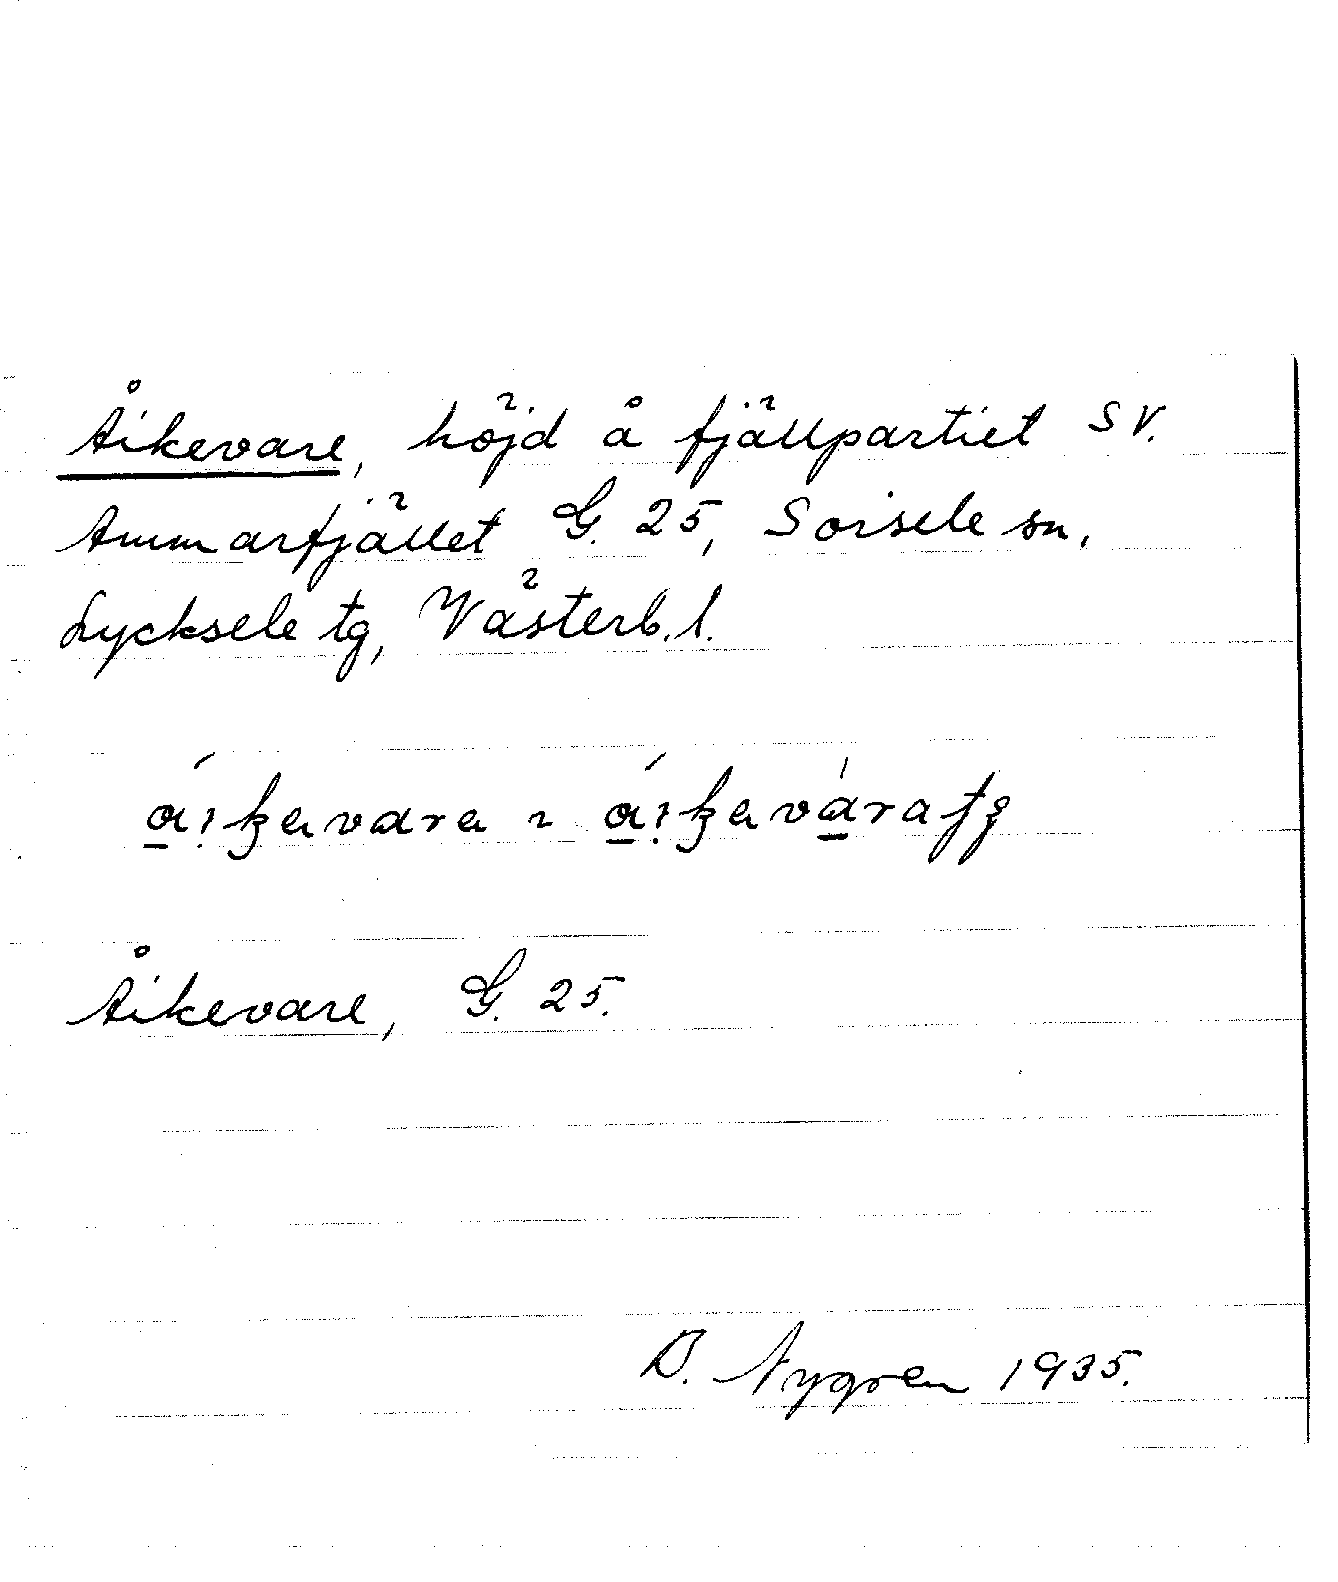 Åikevare, höjd å fjällpartiet SV.
Ammarfjället G. 25, Sorsele sn,
Lycksele tg, Västerb. l.
Åikevare, G. 25.
B. Nygren 1935.